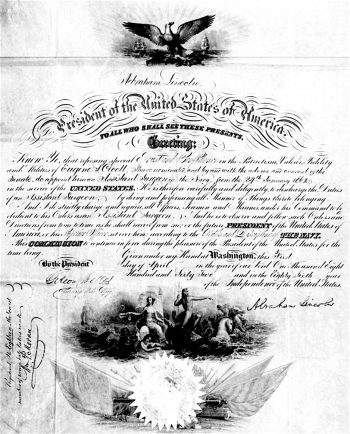 Abraham Lincoln
President of the United States of America.
TO ALL WHO SHALL SEE THESE PRESENTS,
Greeting:
Know Ye, that reposing special in the Patriotism, Valor, Fidelity
and Abilities of Eugene and by and with the advice and consent of the
Senate, do appoint him an Assistant Surgeon in the Navy from the January 1862
in the service of the UNITED STATES. He is therefore carefully and diligently to discharge the Duties
of an Assistant Surgeon by doing and performing all Manner of Things thereto belonging.
And I do strictly charge and require all Officers, Seamen and Marines, under his Command to be
obedient to his Orders as an Assistant Surgeon. And he is to observe and follow such Orders and
Directions from time to time as he shall receive from me, or the future PRESIDENT of the United States of
America, or his Superior Officer set over him, according to the THE NAVY.
This COMMISSION to continue in force during the pleasure of the President of the United States for the
time being.
Given under my Hand at Washington, this First
day of April in the year of our Lord One Thousand Eight
Hundred and Sixty Two and in the Eighty Sixth year
of the Independence of the United States.
By the President
Abraham Lincoln